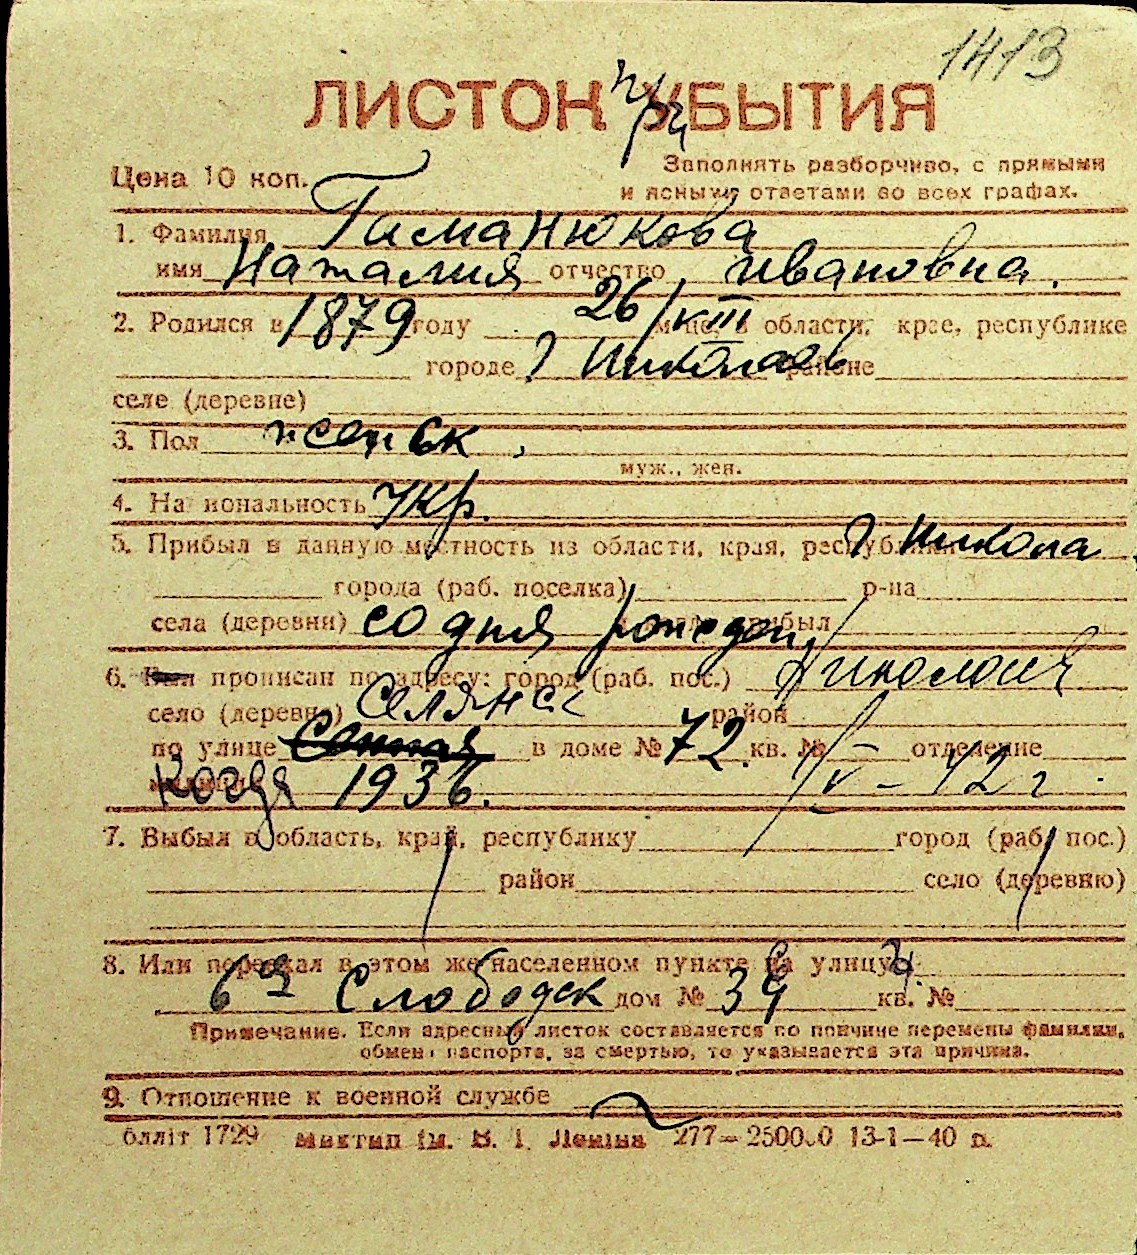 1413
ЛИСТОК УБЫТИЯ
Цена 10 коп.
Заполнять разборчиво, с прямыми
и ясными ответами во всех графах.
1. Фамилия Гиманюкова
имя Наталия отчество ивановна.
2. Родился в 1879 году 26/ м-це, в области, крае, республике
городе г Николаев районе
селе (деревне)
3. Пол женск
муж., жен.
4. Национальность укр.
5. Прибыл в данную местность из области, края, республики г Никола
города (раб. поселка) р-на
села (деревни) со дня рожден прибыл
6. прописан по адресу: город (раб. пос.) Николаев
село (деревня) Селянск район
по улице Сенная в доме № 72 кв. № — отделение
Когда 1936. /V - 42 г.
7. Выбыл в область, край, республику город (раб. пос.)
район село (деревню)
8. Или переехал в этом же населенном пункте на улицу
6ая Слободск дом № 39 кв. №
Примечание. Если адресный листок составляется по причине перемены фамилии,
обмена паспорта, за смертью, то указывается эта причина.
9. Отношение к военной службе
1729 им. В. І. Леніна 277—250000 13-1—40 р.